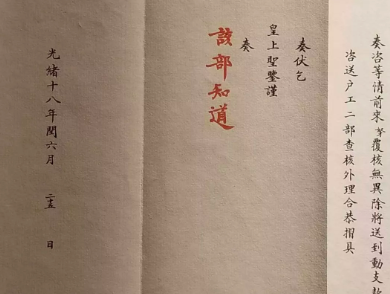 奏咨等请前來等覆核無異除將送到動支款
咨送户工二部查核外理合恭摺具
奏伏乞
皇上聖鑒謹
奏
該部知道
光緒十八年閏六月 二十五 日